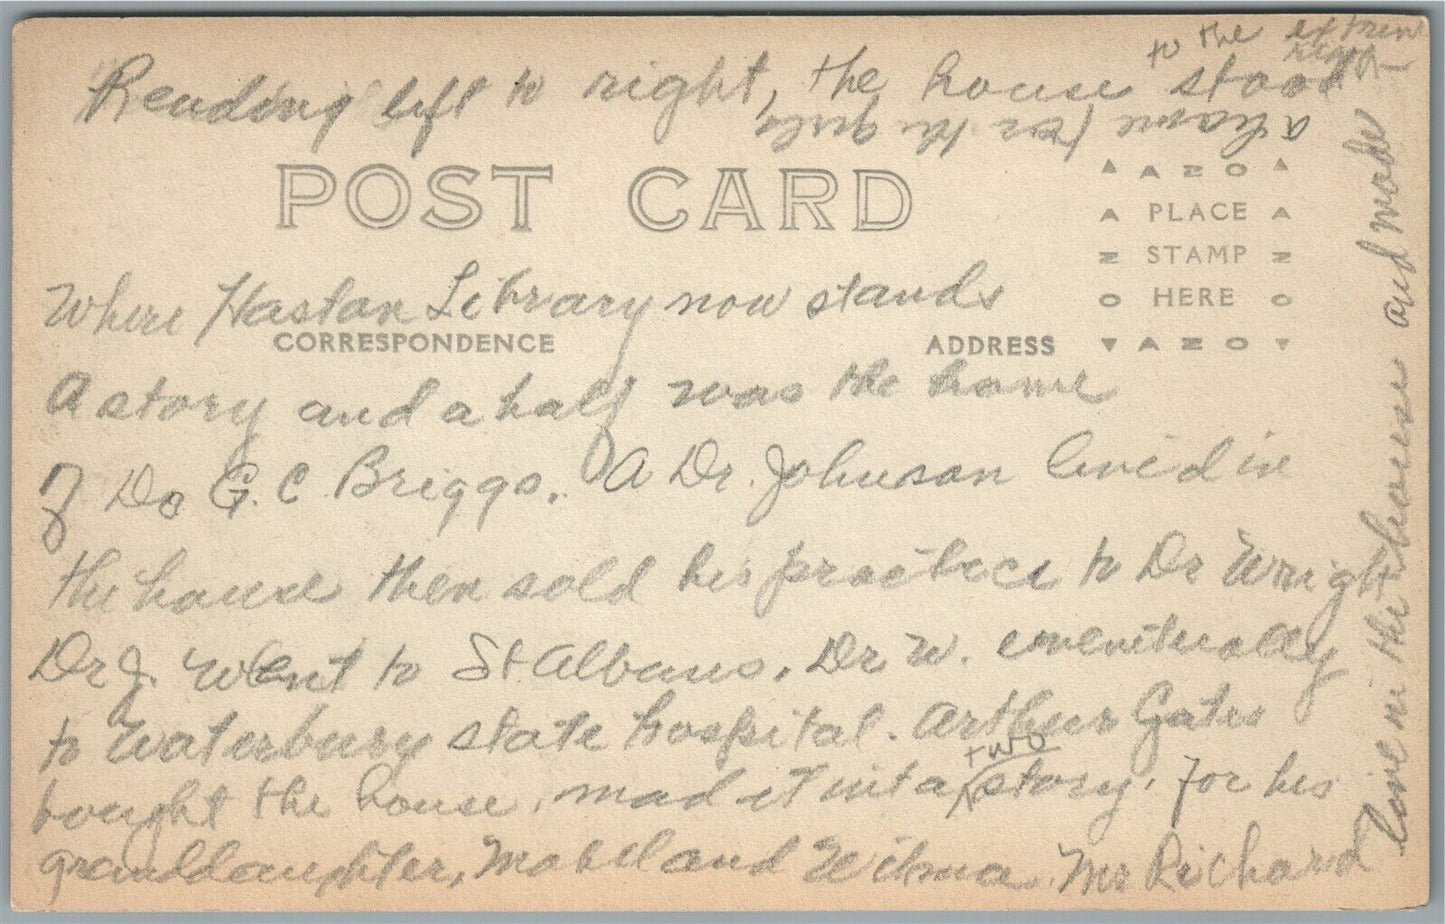 Reading left to right, the house stood
to the extreme
right
POST CARD
AZO
PLACE
STAMP
HERE
AZO
Where Haston Library now stands
CORRESPONDENCE
ADDRESS
A story and a half was the home
of Dr G. C. Briggs. A Dr. Johnson lived in
the house then sold his practice to Dr Wright
Dr J. went to St. Albans. Dr W. eventually
to Waterbury state hospital. Arthur Gates
bought the house, mad it into a two story. for his
granddaughter, Mabel and Wilma. Mr Richard
live in the house and made
a home for the girls